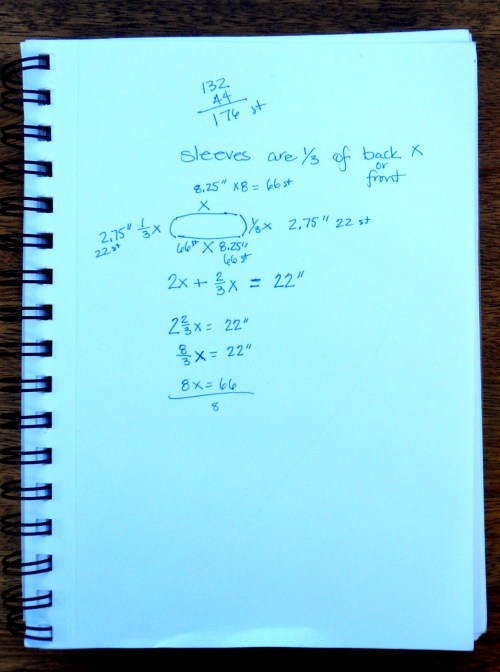 132
44
176 st
sleeves are 1/3 of back x
or
front
8.25" x8 = 66 st
x
2.75" 1/3 x
22 st
1/3 x 2.75" 22 st
66st x 8.25"
66 st
2x + 2/3 x = 22"
2 2/3 x = 22"
8/3 x = 22"
8x = 66
8